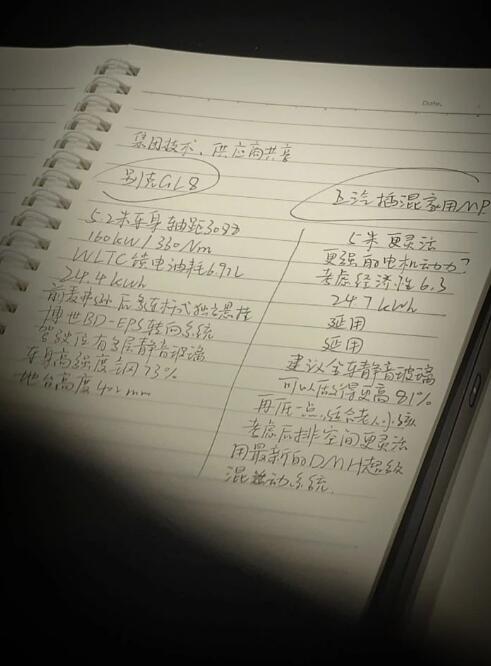 Date.
集团技术、供应商共享
别克GL8
5.2米车身 轴距3088
160kW/330Nm
WLTC馈电油耗6.92L
24.4kwh
前麦弗逊后多连杆式独立悬挂
博世BD-EPS转向系统
驾驶位有多层静音玻璃
车身高强度钢73%
地台高度402mm
上汽插混家用MP
5米 更灵活
更强的电机动力？
考虑经济性6.3
24.7kwh
延用
延用
建议全车静音玻璃
可以做得更高81%
再低一点,适合老人小孩
考虑后排空间更灵活
用最新的DMH超级
混动系统